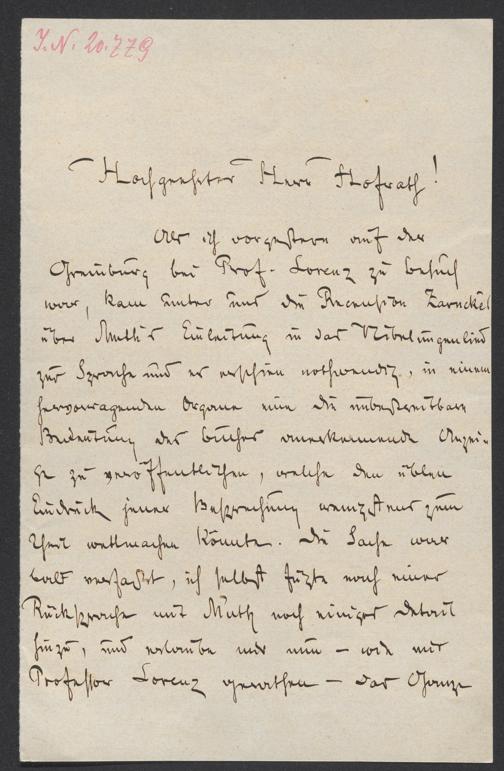 J. N. 20.779
Hochgeehrter Herr Hofrath!
Als ich vorgestern auf der
Greinburg bei Prof. Lorenz zu Besuch
war, kam unter uns die Recension Zarnckes
über Muth's Einleitung in das Nibelungenlied
zur Sprache und es erschien nothwendig, in einem
hervorragenden Organe eine die unbestreitbare
Bedeutung des Buches anerkennende Anzei-
ge zu veröffentlichen, welche den üblen
Eindruck jener Besprechung wenigstens zum
Theil wettmachen könnte. Die Sache war
bald verfaßt, ich selbst fügte nach einer
Rücksprache mit Muth noch einiges Detail
hinzu, und erlaube mir nun – wie mir
Professor Lorenz gerathen – das Ganze